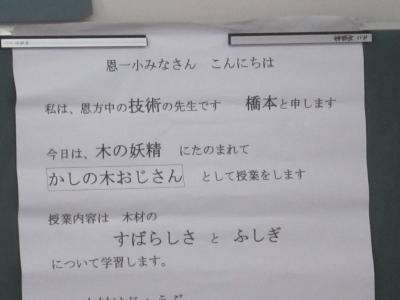 恩一小みなさん　こんにちは
私は、恩方中の技術の先生です　橋本と申します
今日は、木の妖精　にたのまれて
かしの木おじさん　として授業をします
授業内容は　木材の
すばらしさ　と　ふしぎ
について学習します。